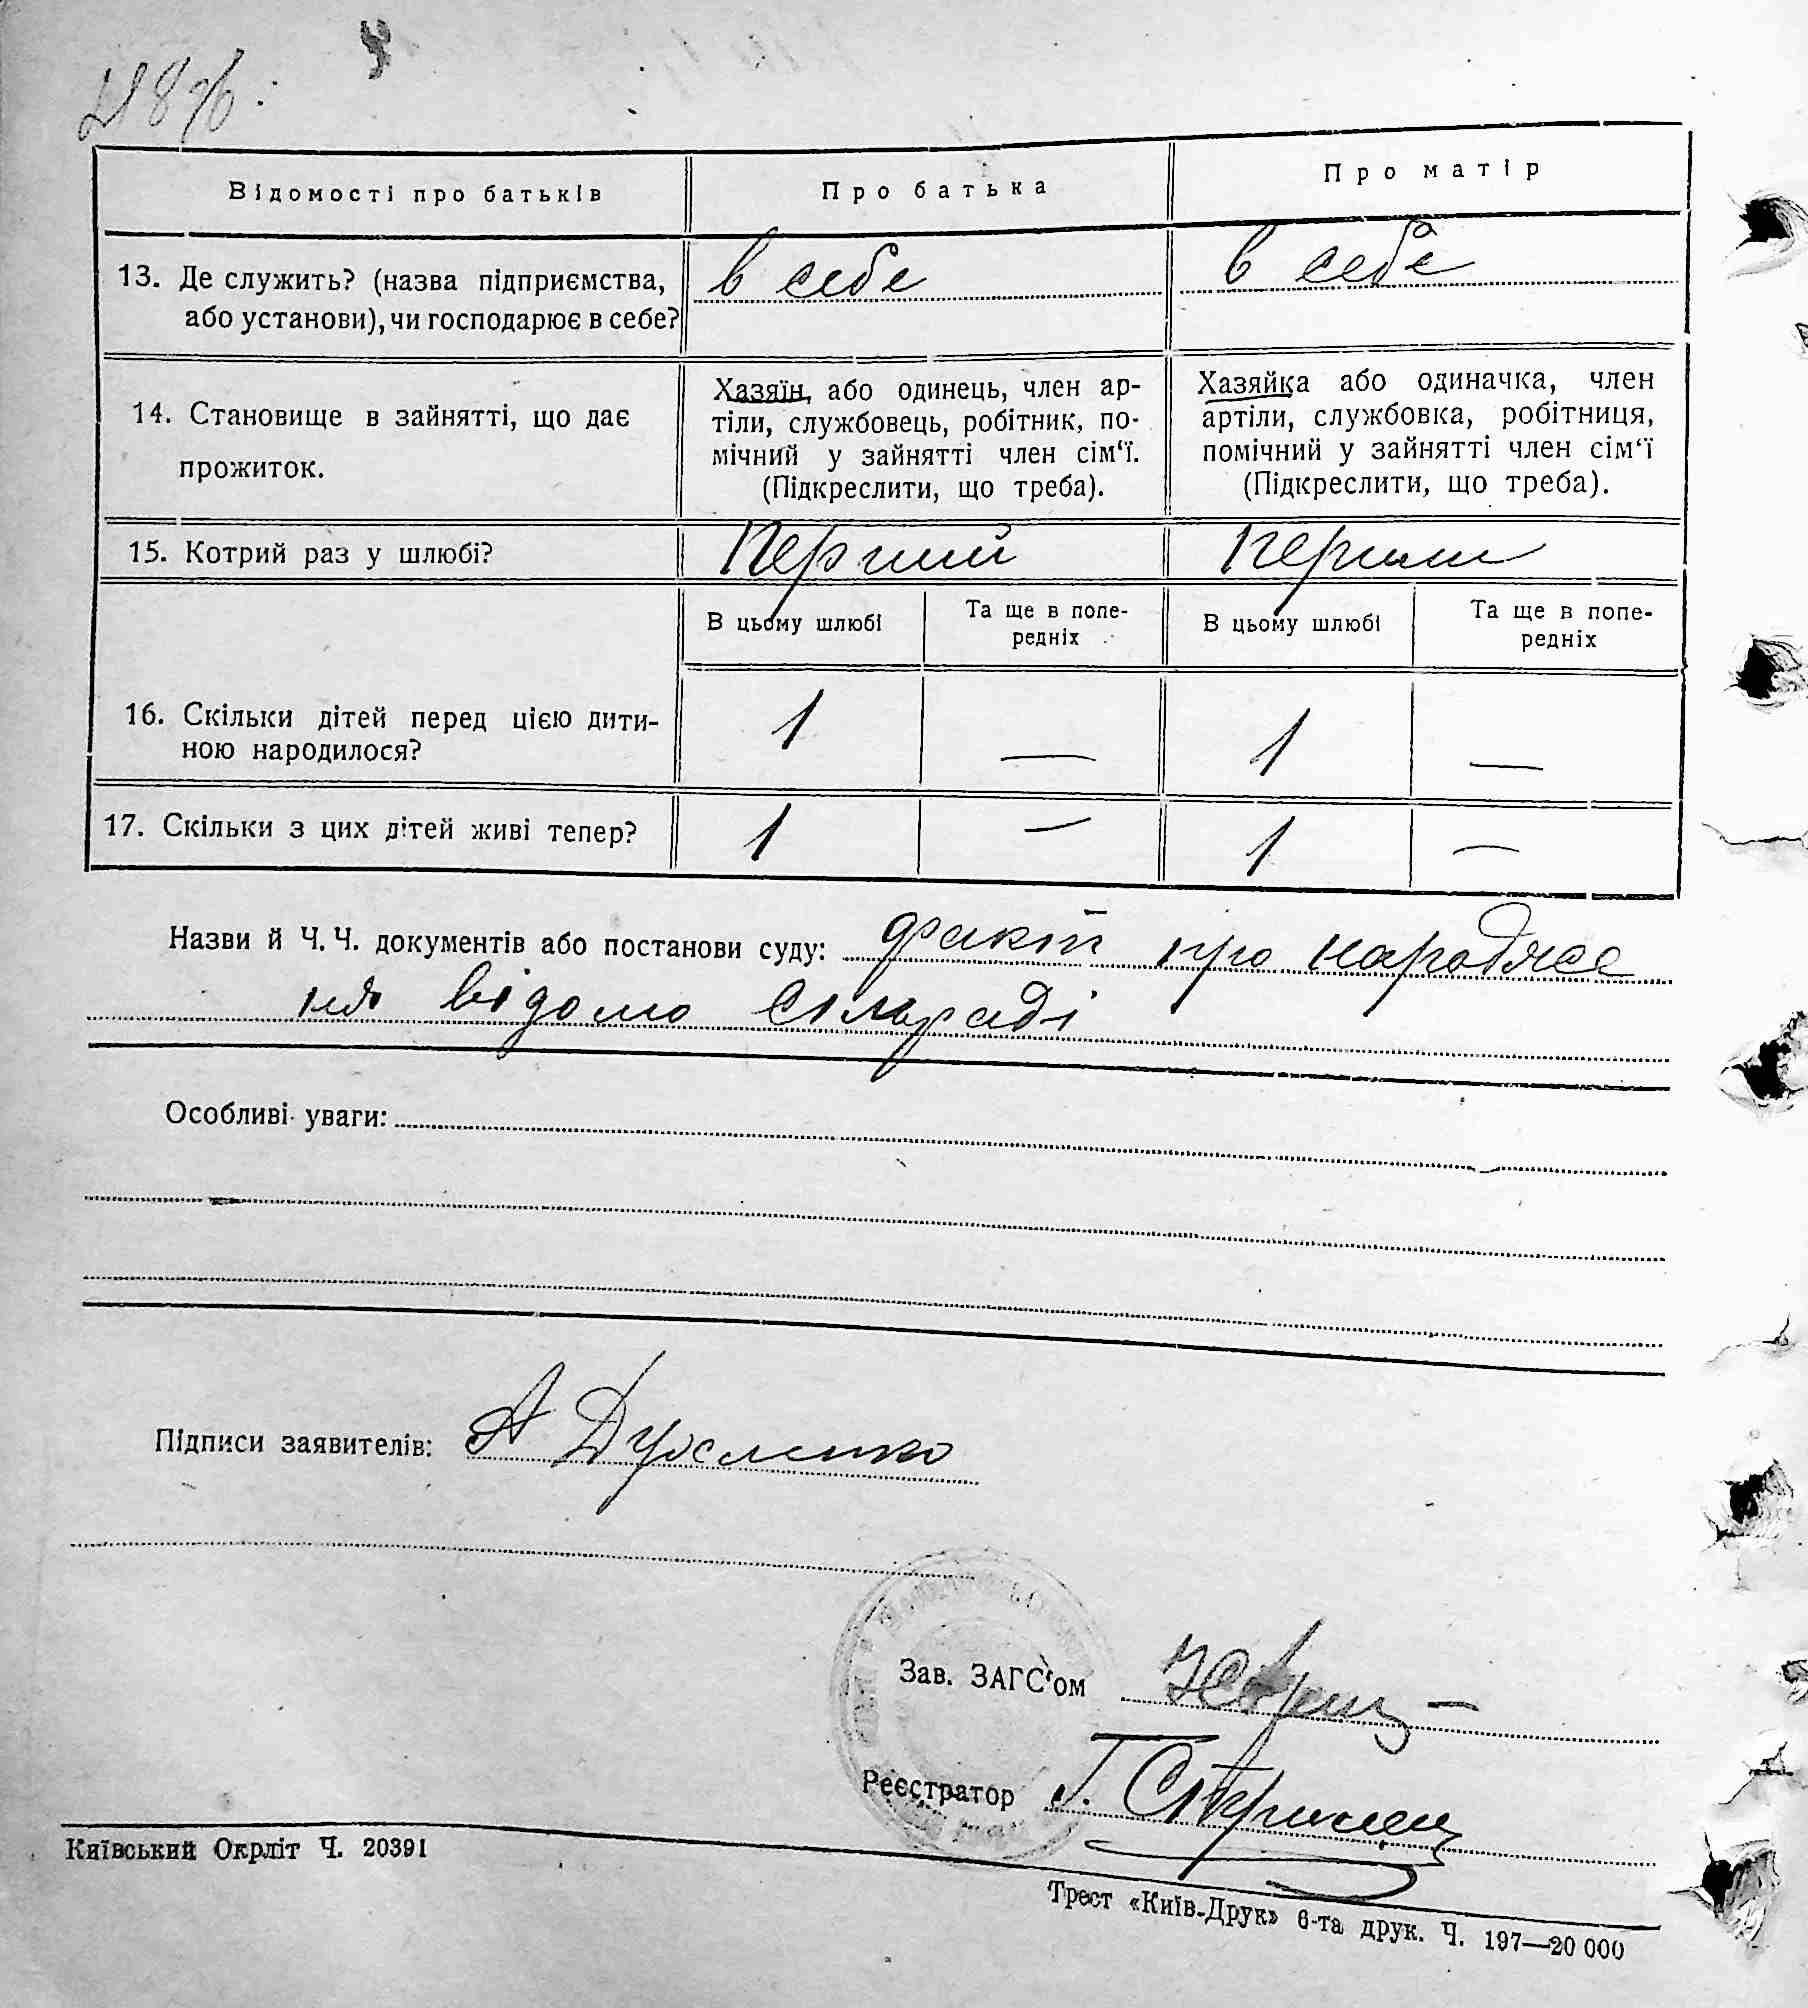 Відомості про батьків
Про батька
Про матір
13. Де служить? (назва підприємства,
або установи), чи господарює в себе?
в себе
в себе
14. Становище в зайнятті, що дає
прожиток.
Хазяїн, або одинець, член ар-
тіли, службовець, робітник, по-
мічний у зайнятті член сім‘ї.
(Підкреслити, що треба).
Хазяйка або одиначка, член
артіли, службовка, робітниця,
помічний у зайнятті член сім‘ї
(Підкреслити, що треба).
15. Котрий раз у шлюбі?
Перший
перший
В цьому шлюбі
Та ще в попе-
редніх
В цьому шлюбі
Та ще в попе-
редніх
16. Скільки дітей перед цією дити-
ною народилося?
1
—
1
—
17. Скільки з цих дітей живі тепер?
1
—
1
—
Назви й Ч. Ч. документів або постанови суду: факт про народжен
ня відомо сільраді
Особливі уваги:
Підписи заявителів: А
Зав. ЗАГС‘ом
Реєстратор Г.
Київський Окрліт Ч. 20391
Трест «Київ-Друк» 6-та друк. Ч. 197—20 000